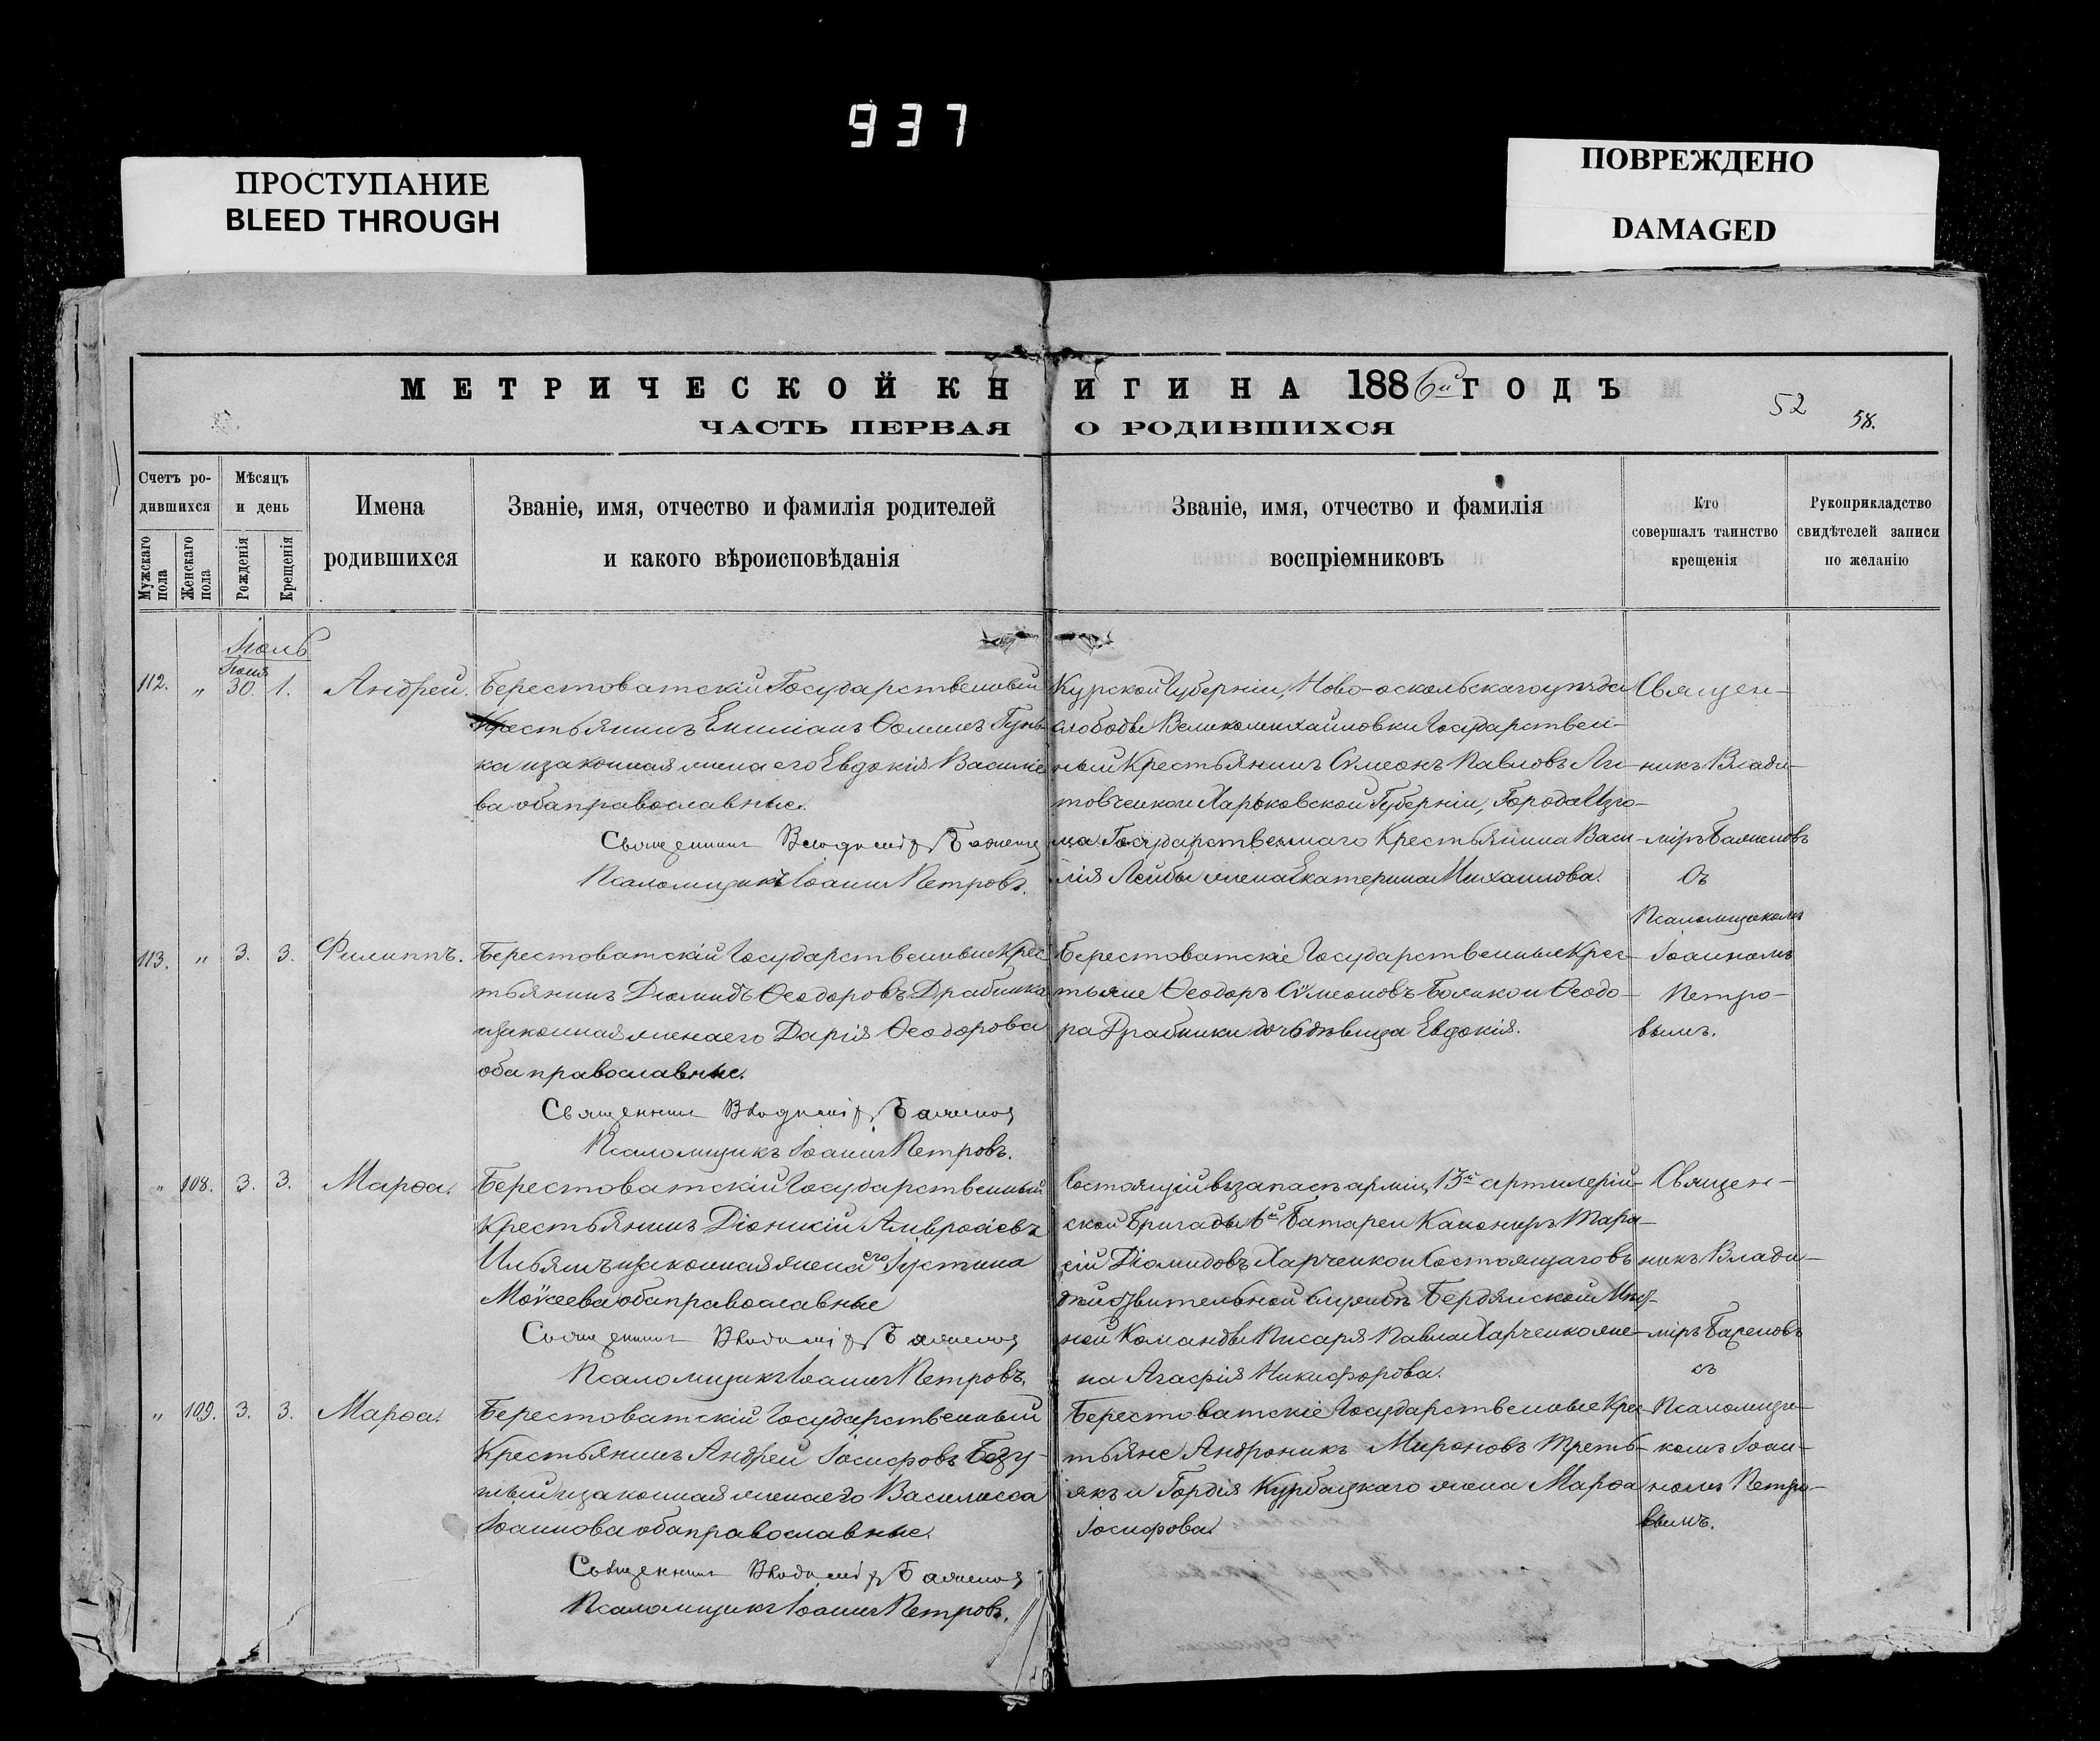 937
ПРОСТУПАНИЕ
BLEED THROUGH
ПОВРЕЖДЕНО
DAMAGED
МЕТРИЧЕСКОЙ КНИГИ НА 1886й ГОДЪ
52
58.
ЧАСТЬ ПЕРВАЯ О РОДИВШИХСЯ
Счетъ родившихся
Мужскаго пола
Женскаго пола
Мѣсяцъ и день
Рожденія
Крещенія
Имена родившихся
Званіе, имя, отчество и фамилія родителей
и какого вѣроисповѣданія
Званіе, имя, отчество и фамилія
воспріемниковъ
Кто
совершалъ таинство
крещенія
Рукоприкладство
свидѣтелей записи
по желанію
Іюль
Іюня
112. „ 30. 1. Андрей.
Берестоватскій Государственный
Крестьянинъ Емиліанъ Ѳоминъ Гунь-
ка и законная жена его Евдокія Василіе
ва оба православные.
Священникъ Владиміръ Баженов
Псаломщикъ Іоаннъ Петровъ.
Курской Губерніи, Ново-оскольскаго уѣзда
слободы Великомихайловки Государствен-
ный Крестьянинъ Сѵмеонъ Павловъ Ли-
товченко и Харьковской Губерніи, Города Изю-
ма Государственнаго Крестьянина Васи-
лія Лейбы жена Екатерина Михаилова.
Священ-
никъ Влади-
міръ Баженовъ
Съ
Псаломщикомъ
Іоанномъ
Петро-
вымъ.
113. „ 3. 3. Филиппъ.
Берестоватскій Государственный Крес
тьянинъ Діомидъ Ѳеодоровъ Драбника
и законная жена его Дарія Ѳеодорова
оба православные.
Священник Владиміръ Баженов
Псаломщикъ Іоаннъ Петровъ.
Берестоватскіе Государственные Крес-
тьяне Ѳеодоръ Сѵмеоновъ Божко и Ѳеодо-
ра Драбники дочь дѣвица Евдокія.
„ 108. 3. 3. Марѳа.
Берестоватскій Государственный
Крестьянинъ Діонисій Амвросіевъ
Ильяшъ и законная жена его Іустина
Моѵсеева оба православные
Священник Владиміръ Баженов
Псаломщикъ Іоаннъ Петровъ.
Состоящій въ запасѣ арміи, 13й артилерій-
ской Бригады 6й Батареи Канониръ Тара-
сій Діомидовъ Харченко и Состоящаго въ
дѣйствительной службѣ Бердянской Мѣст-
ной Команды Писаря Павла Харченко же-
на Агафія Никифорова.
Священ-
никъ Влади-
міръ Баженовъ
съ
Псаломщи-
комъ Іоан-
номъ Петро-
вымъ.
„ 109. 3. 3. Марѳа.
Берестоватскій Государственный
Крестьянинъ Андрей Іосифовъ Безу-
глый и законная жена его Василисса
Іоаннова оба православные.
Священник Владиміръ Баженов
Псаломщикъ Іоаннъ Петровъ.
Берестоватскіе Государственные Крес-
тьяне Андроникъ Мироновъ Треть-
якъ и Гордія Курбацкаго жена Марѳа
Іосифова.